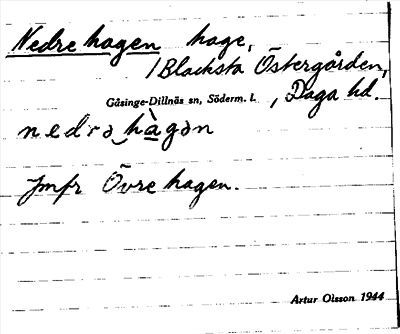 Nedre hagen hage,
/Blacksta Östergården,
Gåsinge-Dillnäs sn, Söderm. l. , Daga hd.
nedrə hàgən
Jmfr Övre hagen.
Artur Olsson 1944